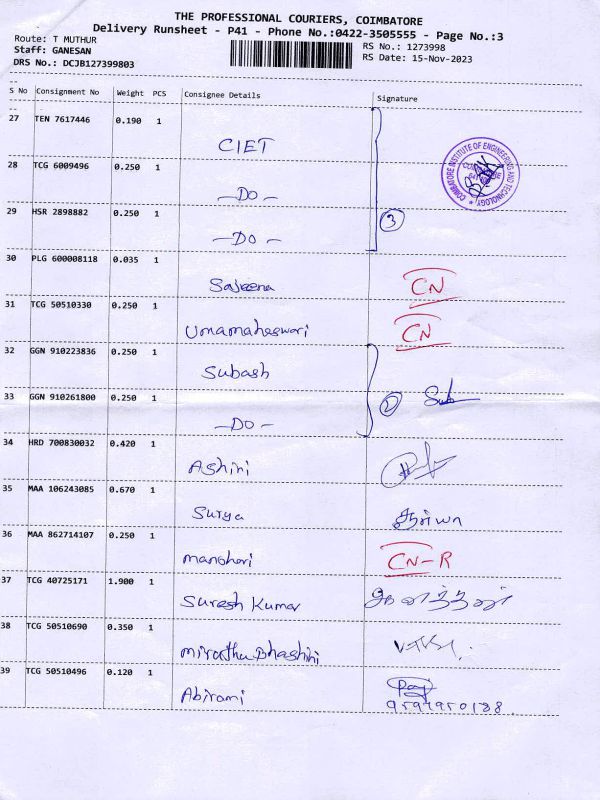 THE PROFESSIONAL COURIERS, COIMBATORE
Delivery Runsheet - P41 - Phone No.:0422-3505555 - Page No.:3
Route: T MUTHUR
RS No.: 1273998
Staff: GANESAN
RS Date: 15-Nov-2023
DRS No.: DCJB127399803
S No Consignment No Weight PCS Consignee Details Signature
27 TEN 7617446 0.190 1 CIET
COIMBATORE INSTITUTE OF ENGINEERING AND TECHNOLOGY
28 TCG 6009496 0.250 1 -Do-
29 HSR 2898882 0.250 1 -Do- 3
30 PLG 600008118 0.035 1 Sajeena CN
31 TCG 50510330 0.250 1 Umamaheswari CN
32 GGN 910223836 0.250 1 Subash
33 GGN 910261800 0.250 1 -Do- 2 Sub
34 HRD 700830032 0.420 1 Ashini
35 MAA 106243085 0.670 1 Surya சூர்யா
36 MAA 862714107 0.250 1 manohari CN-R
37 TCG 40725171 1.900 1 Suresh Kumar
38 TCG 50510690 0.350 1
39 TCG 50510496 0.120 1 Abirami